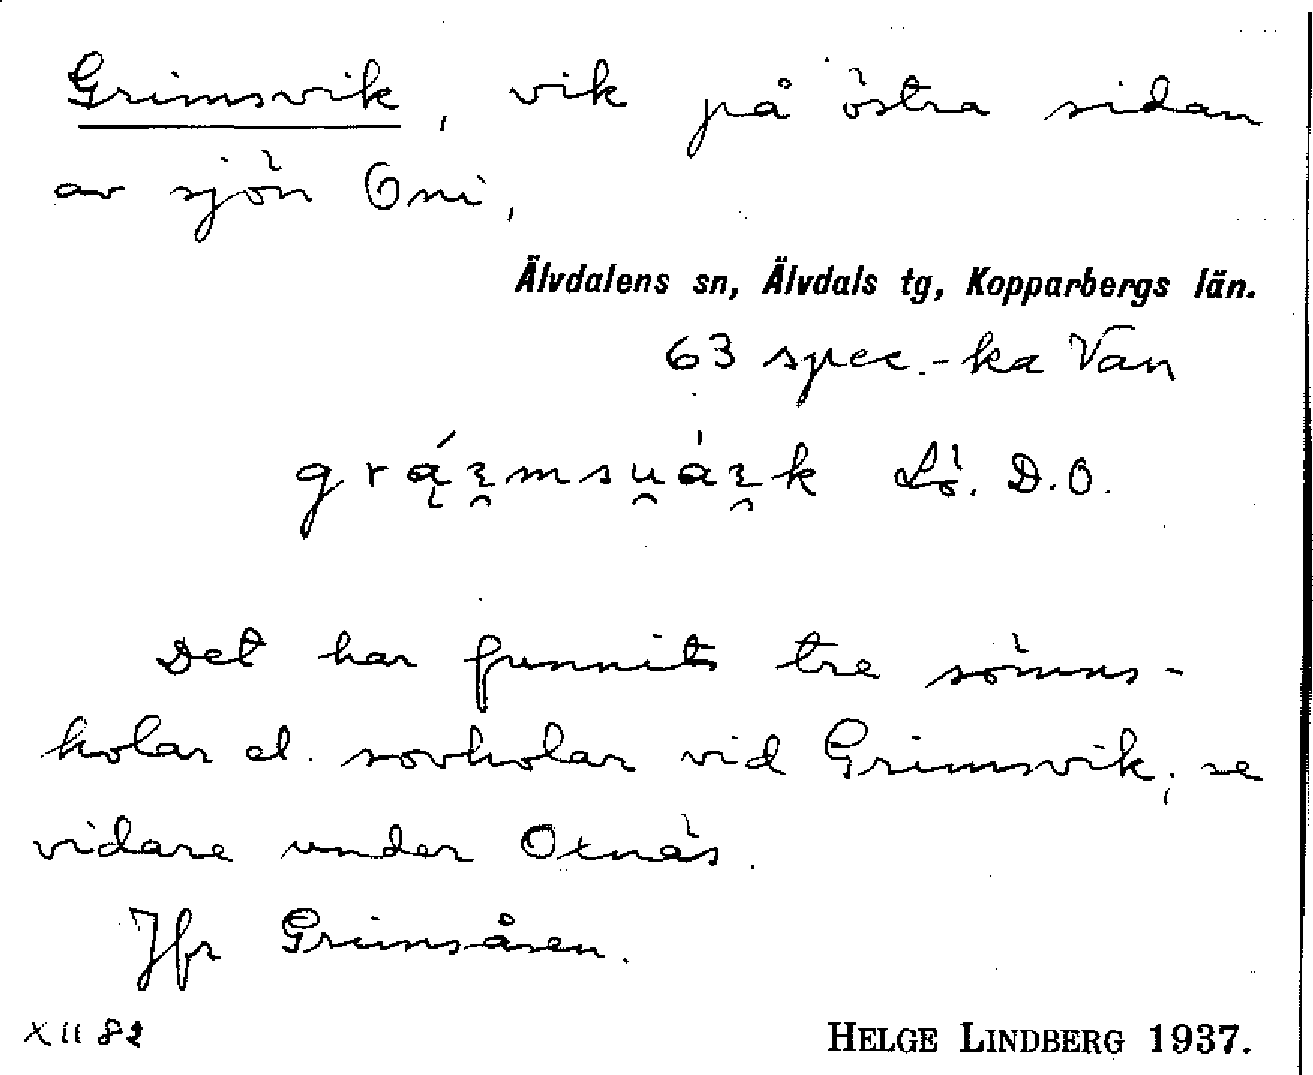 Grimsvik, vik på östra sidan
av sjön Oni,
Älvdalens sn, Älvdals tg, Kopparbergs län.
63 spec.-ka Van
Lö. D.O.
Det har funnits tre sömns-
kolar el. sovkolar vid Grimsvik; se
vidare under Oxnäs.
Jfr Grimsåsen.
XII 82
HELGE LINDBERG 1937.